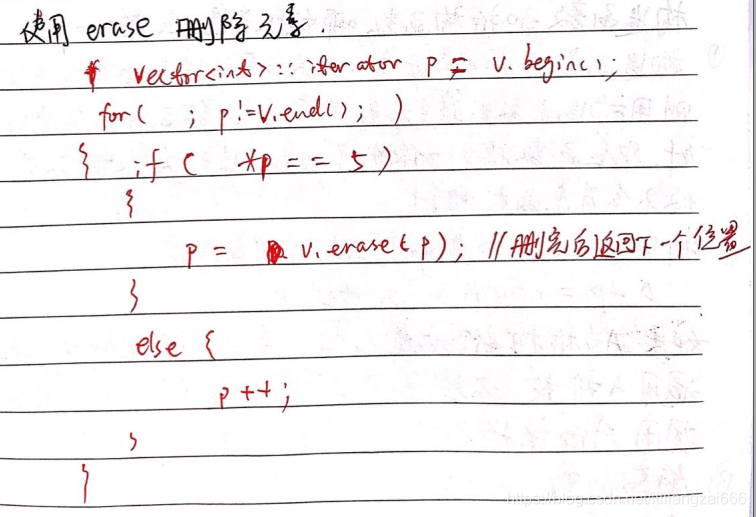 使用 erase 删除元素.
vector<int>::iterator p = v.begin();
for( ; p!=v.end(); )
{ if ( *p == 5)
{
p = v.erase(p); //删完后返回下一个位置
}
else {
p++;
}
}
https://blog.csdn.net/liliangzai666